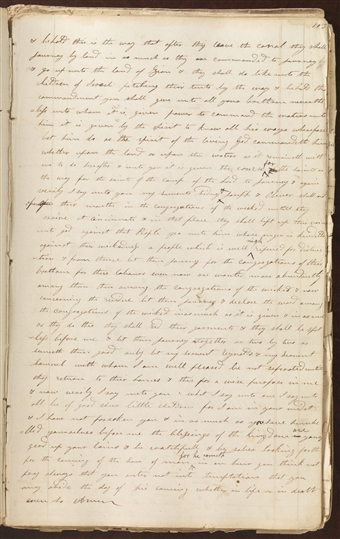 105
& behold this is the way that after they leave the canal they shall
journey by land in as much as they are commanded to journey
& go up unto the land of Zion & they shall do like unto the
children of Israel pitching their tents by the way & behold this
commandment you shall give unto all your brethren nevertheless
unto whom it is given power to command the waters unto
him it is given by the spirit to know all his ways wherefore
let him do as the spirit of the living God commandeth him
whether upon the land or upon the waters as it remaineth with
me to do hereafter & unto you it is given the course for the saints or
the way for the saints of the camp of the Lord to journey & again
verily I say unto you my servents Sidney & Joseph & Oliver shall not
open their mouths in the congregations of the wicked until they
arive at Cincinnate & in that place they shall lift up their voices
unto God against that People yea unto him whose anger is kindled
against their wickedness a people which is well nigh ripened for distruction
& from thence let them journey for the congregations of their
brethren for their labours even now are wanted more abundantly
among them then among the congregations of the wicked & now
concerning the residue let them journey & declare the word among
the congregations of the wicked inasmuch as it is given & inasmuch
as they do this they shall rid their garments & they shall be spot
less before me & let them journey together or two by two as
seemeth them good only let my servent Reynolds & my servent
Samuel with whom I am well pleased be not seperated until
they return to their homes & this for a wise purpose in me
& now verily I say unto you & what I say unto one I say unto
all be of good cheer little children for I am in your midst
& I have not forsaken you & in as much as you have humbled
yourselves before me the blessings of the kingdom are yours
gird up your loins & be watchful & be sober looking forth
for the coming of the Son of man for he cometh in an hour you think not
pray always that you enter not into temptation that you
may abide the day of his coming whether in life or in death
even so Amen